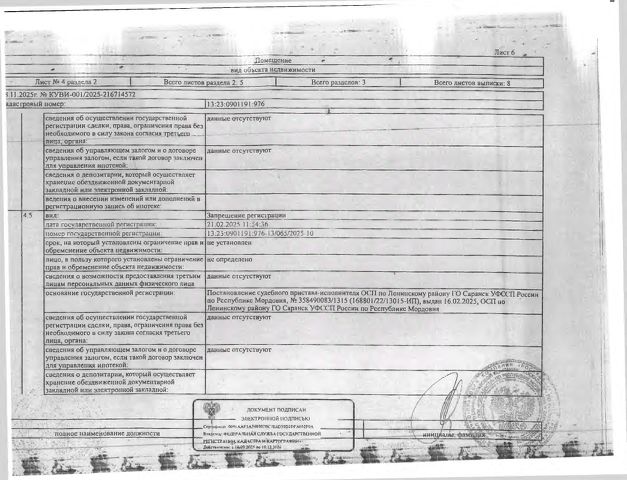 Лист 6
Помещение
вид объекта недвижимости
Лист № 4 раздела 2
Всего листов раздела 2: 5
Всего разделов: 3
Всего листов выписки: 8
.11.2025г. № КУВИ-001/2025-216714572
кадастровый номер:
13:23:0901191:976
сведения об осуществлении государственной
регистрации сделки, права, ограничения права без
необходимого в силу закона согласия третьего
лица, органа:
данные отсутствуют
сведения об управляющем залогом и о договоре
управления залогом, если такой договор заключен
для управления ипотекой:
данные отсутствуют
сведения о депозитарии, который осуществляет
хранение обездвиженной документарной
закладной или электронной закладной:
ведения о внесении изменений или дополнений в
регистрационную запись об ипотеке:
4.5
вид:
Запрещение регистрации
дата государственной регистрации:
21.02.2025 11:54:36
номер государственной регистрации:
13:23:0901191:976-13/065/2025-10
срок, на который установлены ограничение прав и
обременение объекта недвижимости:
не установлен
лицо, в пользу которого установлены ограничение
прав и обременение объекта недвижимости:
не определено
сведения о возможности предоставления третьим
лицам персональных данных физического лица
данные отсутствуют
основание государственной регистрации:
Постановление судебного пристава-исполнителя ОСП по Ленинскому району ГО Саранск УФССП России
по Республике Мордовия, № 358490083/1315 (168801/22/13015-ИП), выдан 16.02.2025, ОСП по
Ленинскому району ГО Саранск УФССП России по Республике Мордовия
сведения об осуществлении государственной
регистрации сделки, права, ограничения права без
необходимого в силу закона согласия третьего
лица, органа:
данные отсутствуют
сведения об управляющем залогом и о договоре
управления залогом, если такой договор заключен
для управления ипотекой:
данные отсутствуют
сведения о депозитарии, который осуществляет
хранение обездвиженной документарной
закладной или электронной закладной:
данные отсутствуют
ДОКУМЕНТ ПОДПИСАН
ЭЛЕКТРОННОЙ ПОДПИСЬЮ
Владелец: ФЕДЕРАЛЬНАЯ СЛУЖБА ГОСУДАРСТВЕННОЙ
РЕГИСТРАЦИИ, КАДАСТРА И КАРТОГРАФИИ
полное наименование должности
инициалы, фамилия